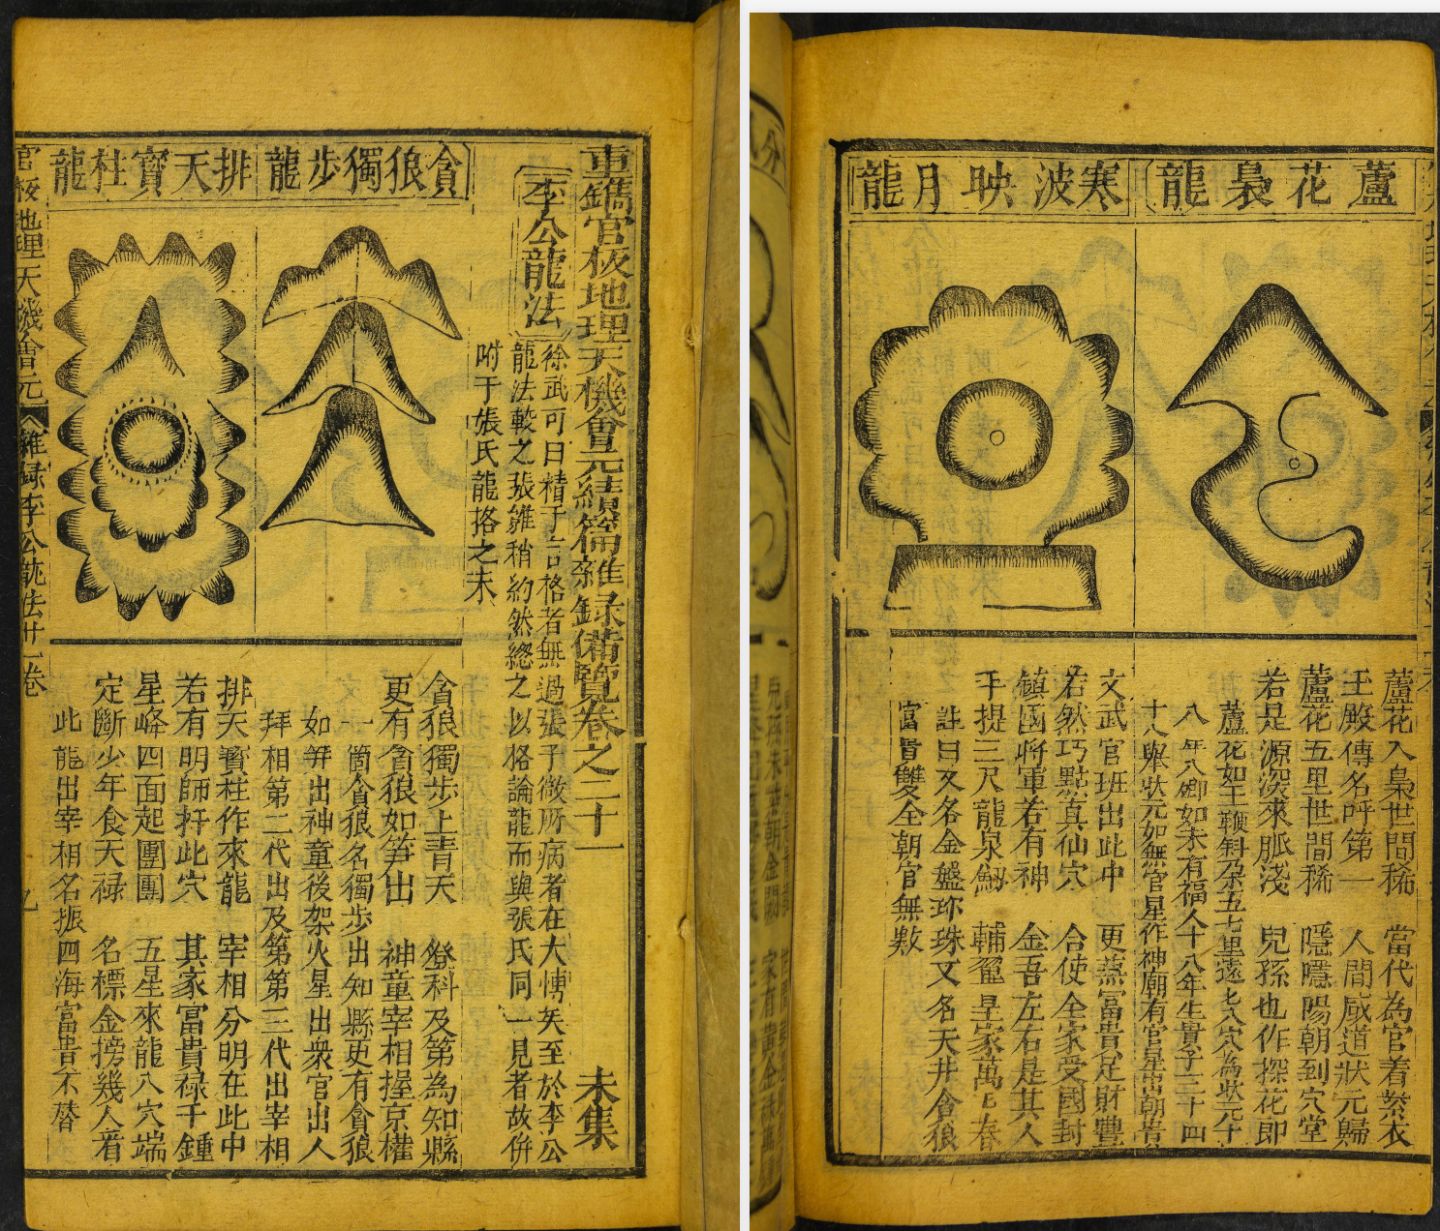 重鐫官板地理天機會元續篇雜録備覽卷之二十一 未集
李公龍法
徐武可曰精于言格者無過張子微所病者在大愽矣至於李公
龍法較之張雖稍約然總之以格論龍而與張氏同一見者故倂
附于張氏龍挌之末
貪狼獨步龍
貪狼獨步上青天 登科及第為知縣
更有貪狼如笋出 神童宰相握京權
一箇貪狼名獨步出知縣更有貪狼
如笋出神童後架火星出衆官出人
拜相第二代出及第第三代出宰相
排天寳柱龍
排天寳柱作來龍 宰相分明在此中
若有明師扦此穴 其家富貴禄千鍾
星峰四面起團團 五星來龍入穴端
定斷少年食天禄 名標金榜幾人看
此龍出宰相名振四海富貴不替
官板地理天機會元 雜録李公龍法廿一卷 九
蘆花裊龍
蘆花入梟世間稀 當代為官着紫衣
王殿傳名呼第一 人間咸道狀元歸
蘆花五里世間稀 隱隱陽朝到穴堂
若是源深來脈淺 兒孫也作探花即
蘆花如王鞭斜朶五七里遠七八穴為狀元十
八年八卿如未有福人十八年生貴子三十四
十八與狀元如無官星作神廟有官星出朝貴
寒波映月龍
文武官班出此中 更蔭冨貴足財豊
若然巧點真仙穴 合使全家受國封
鎮國將軍若有神 金吾左右是其人
手提三尺龍泉劒 輔翌皇家萬 春
註曰又名金盤珎珠又名天井倉狼
富貴雙全朝官無數